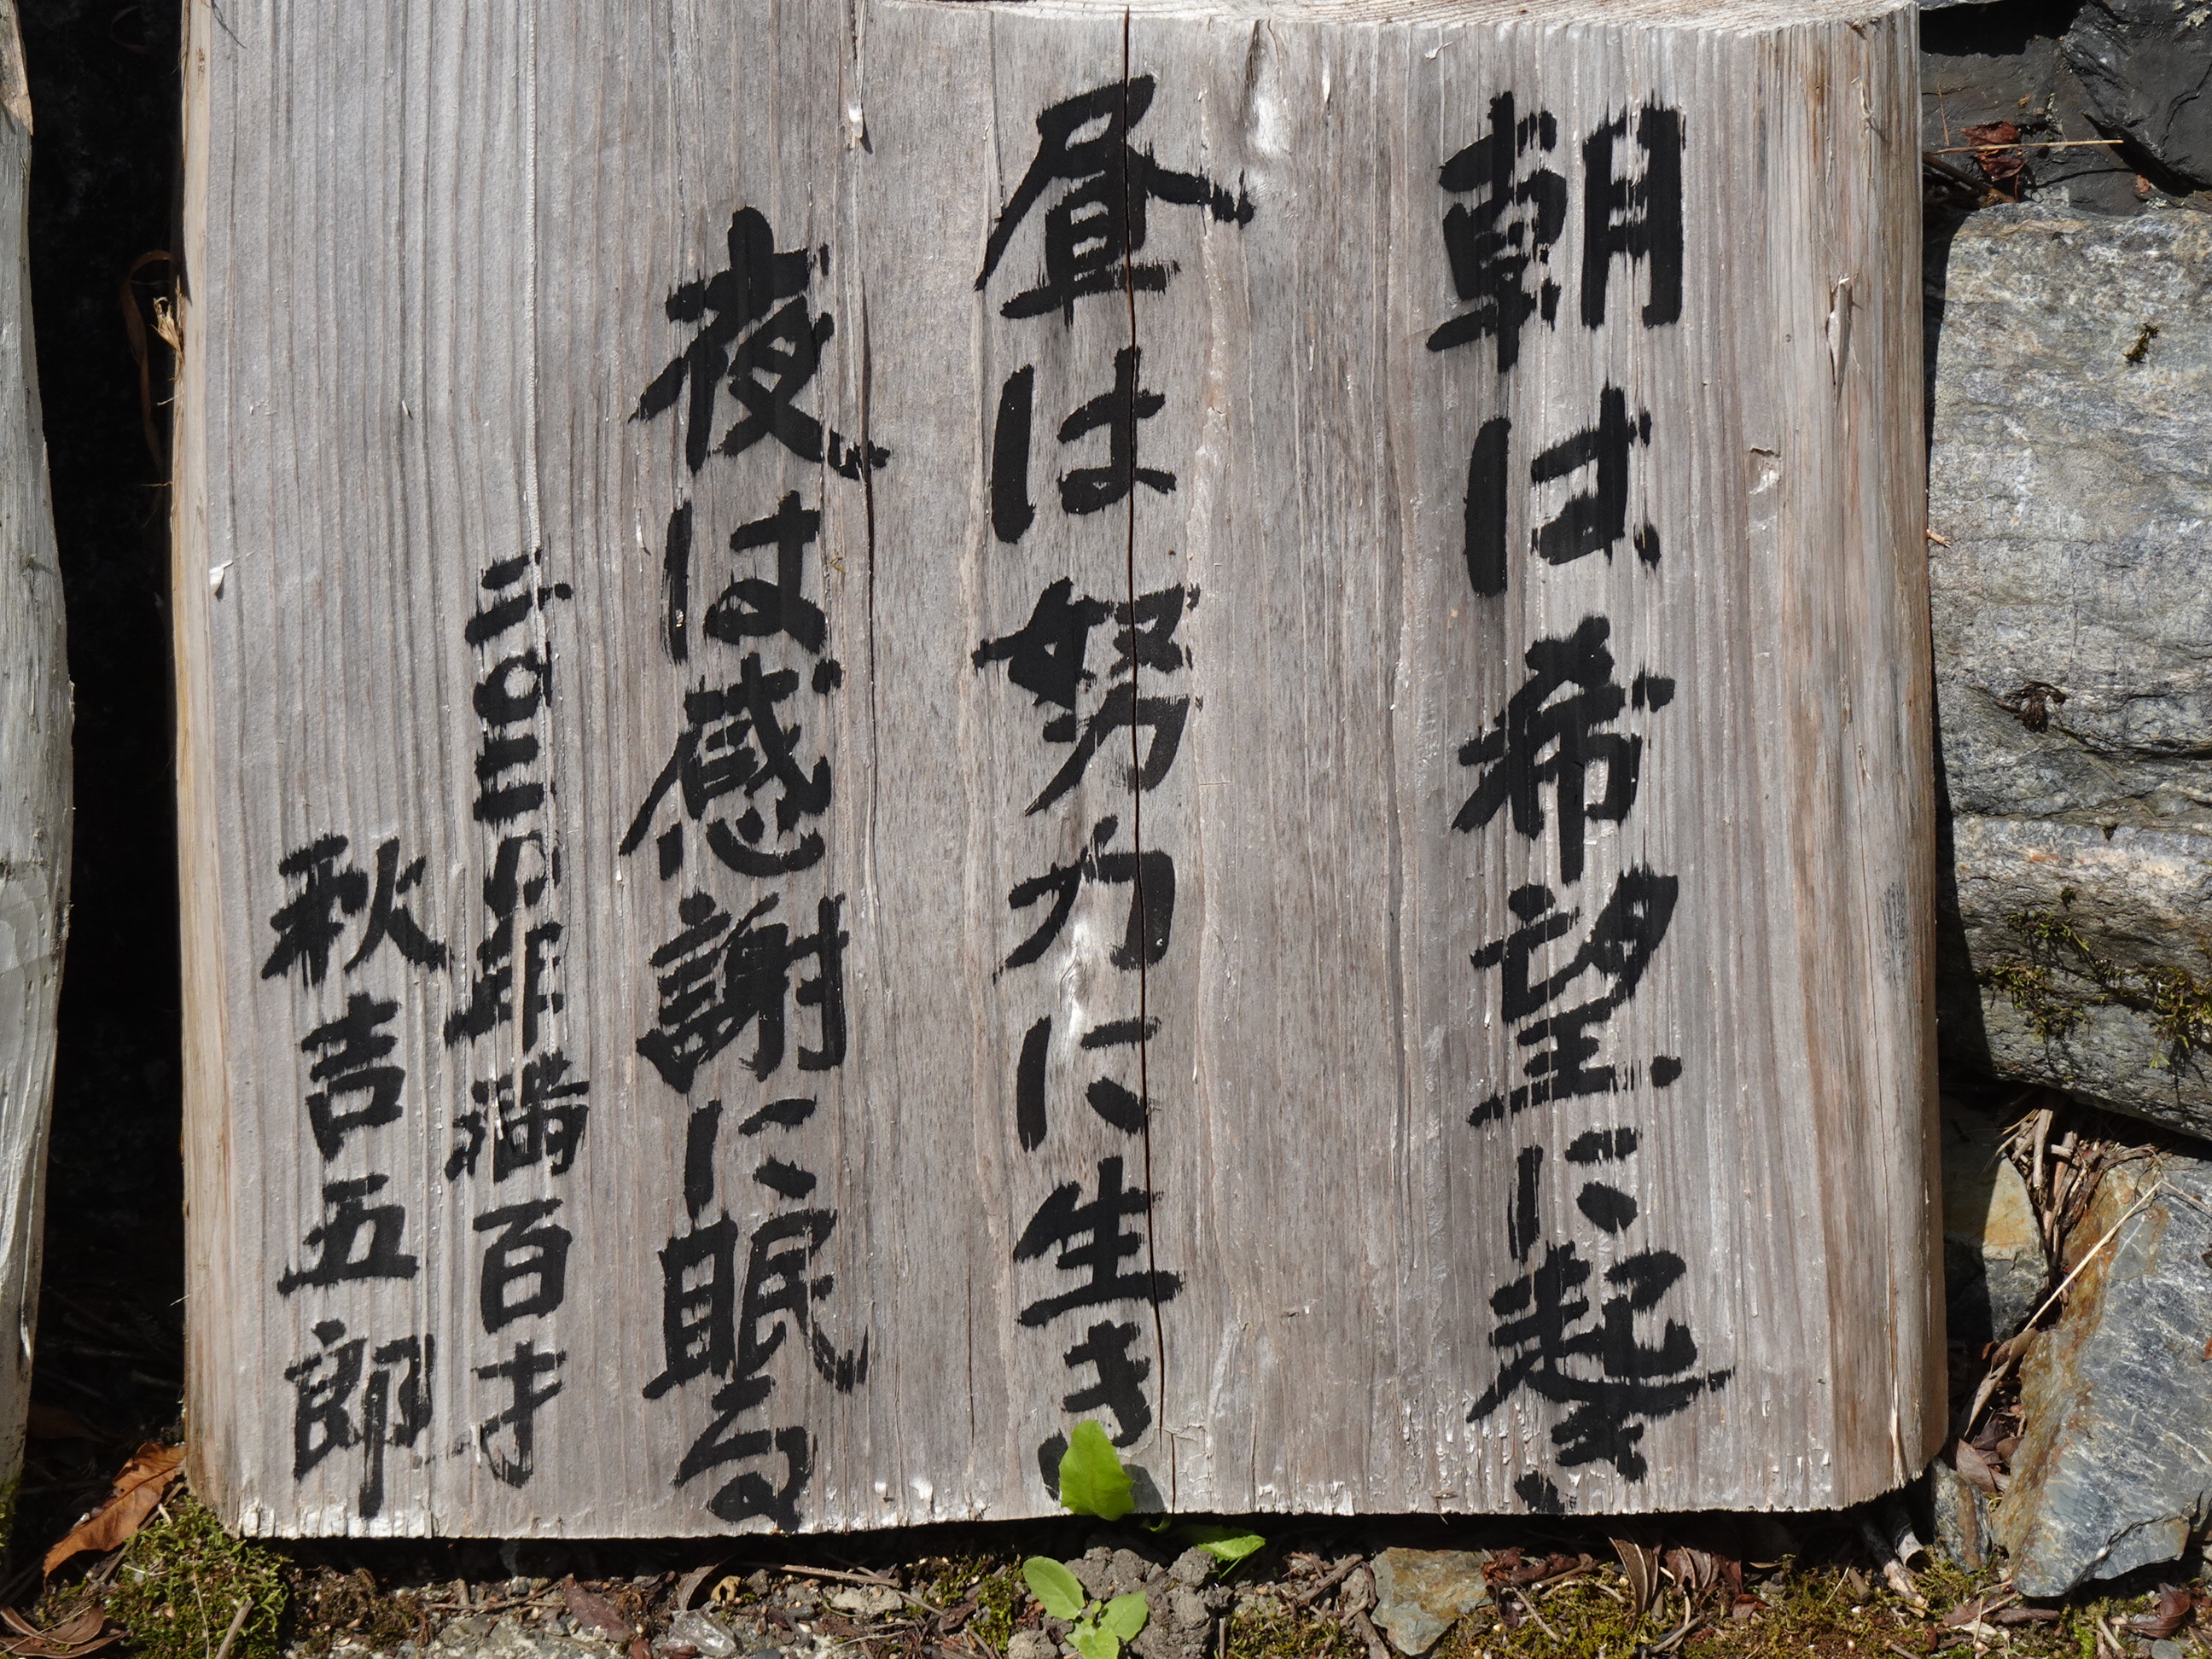 朝は希望に起き
昼は努力に生き
夜は感謝に眠る
二〇三〇年満百才
秋吉五郎